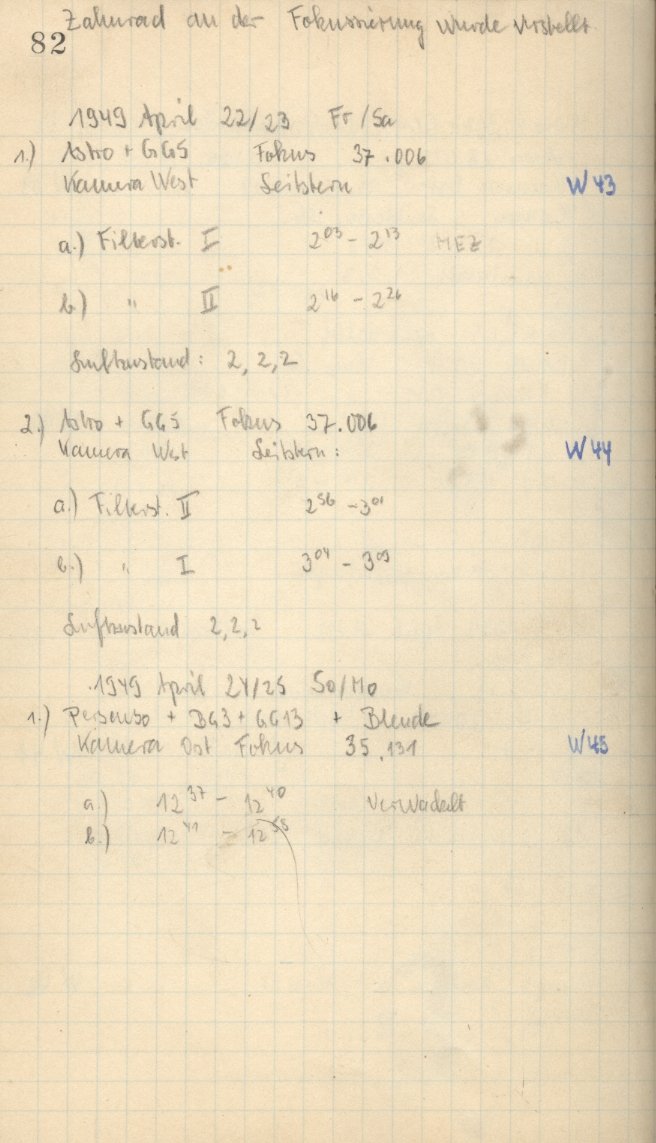 Zahnrad an der Fokussierung wurde verstellt
82
1949 April 22/23 Fr/Sa
1.) Astro + GG5 Fokus 37.006
Kamera West Leitstern W43
a.) Filterst. I 2⁰³ - 2¹³ MEZ
b.) " II 2¹⁶ - 2²⁶
Luftzustand: 2, 2, 2
2.) Astro + GG5 Fokus 37.006
Kamera West Leitstern: W44
a.) Filterst. II 2⁵⁶ - 3⁰¹
b.) " I 3⁰⁴ - 3⁰⁹
Luftzustand 2, 2, 2
1949 April 24/25 So/Mo
1.) + BG3 + GG13 + Blende
Kamera Ost Fokus 35.131 W45
a.) 12³⁷ - 12⁴⁰ verwackelt
b.) 12⁴¹ - 12⁵⁸